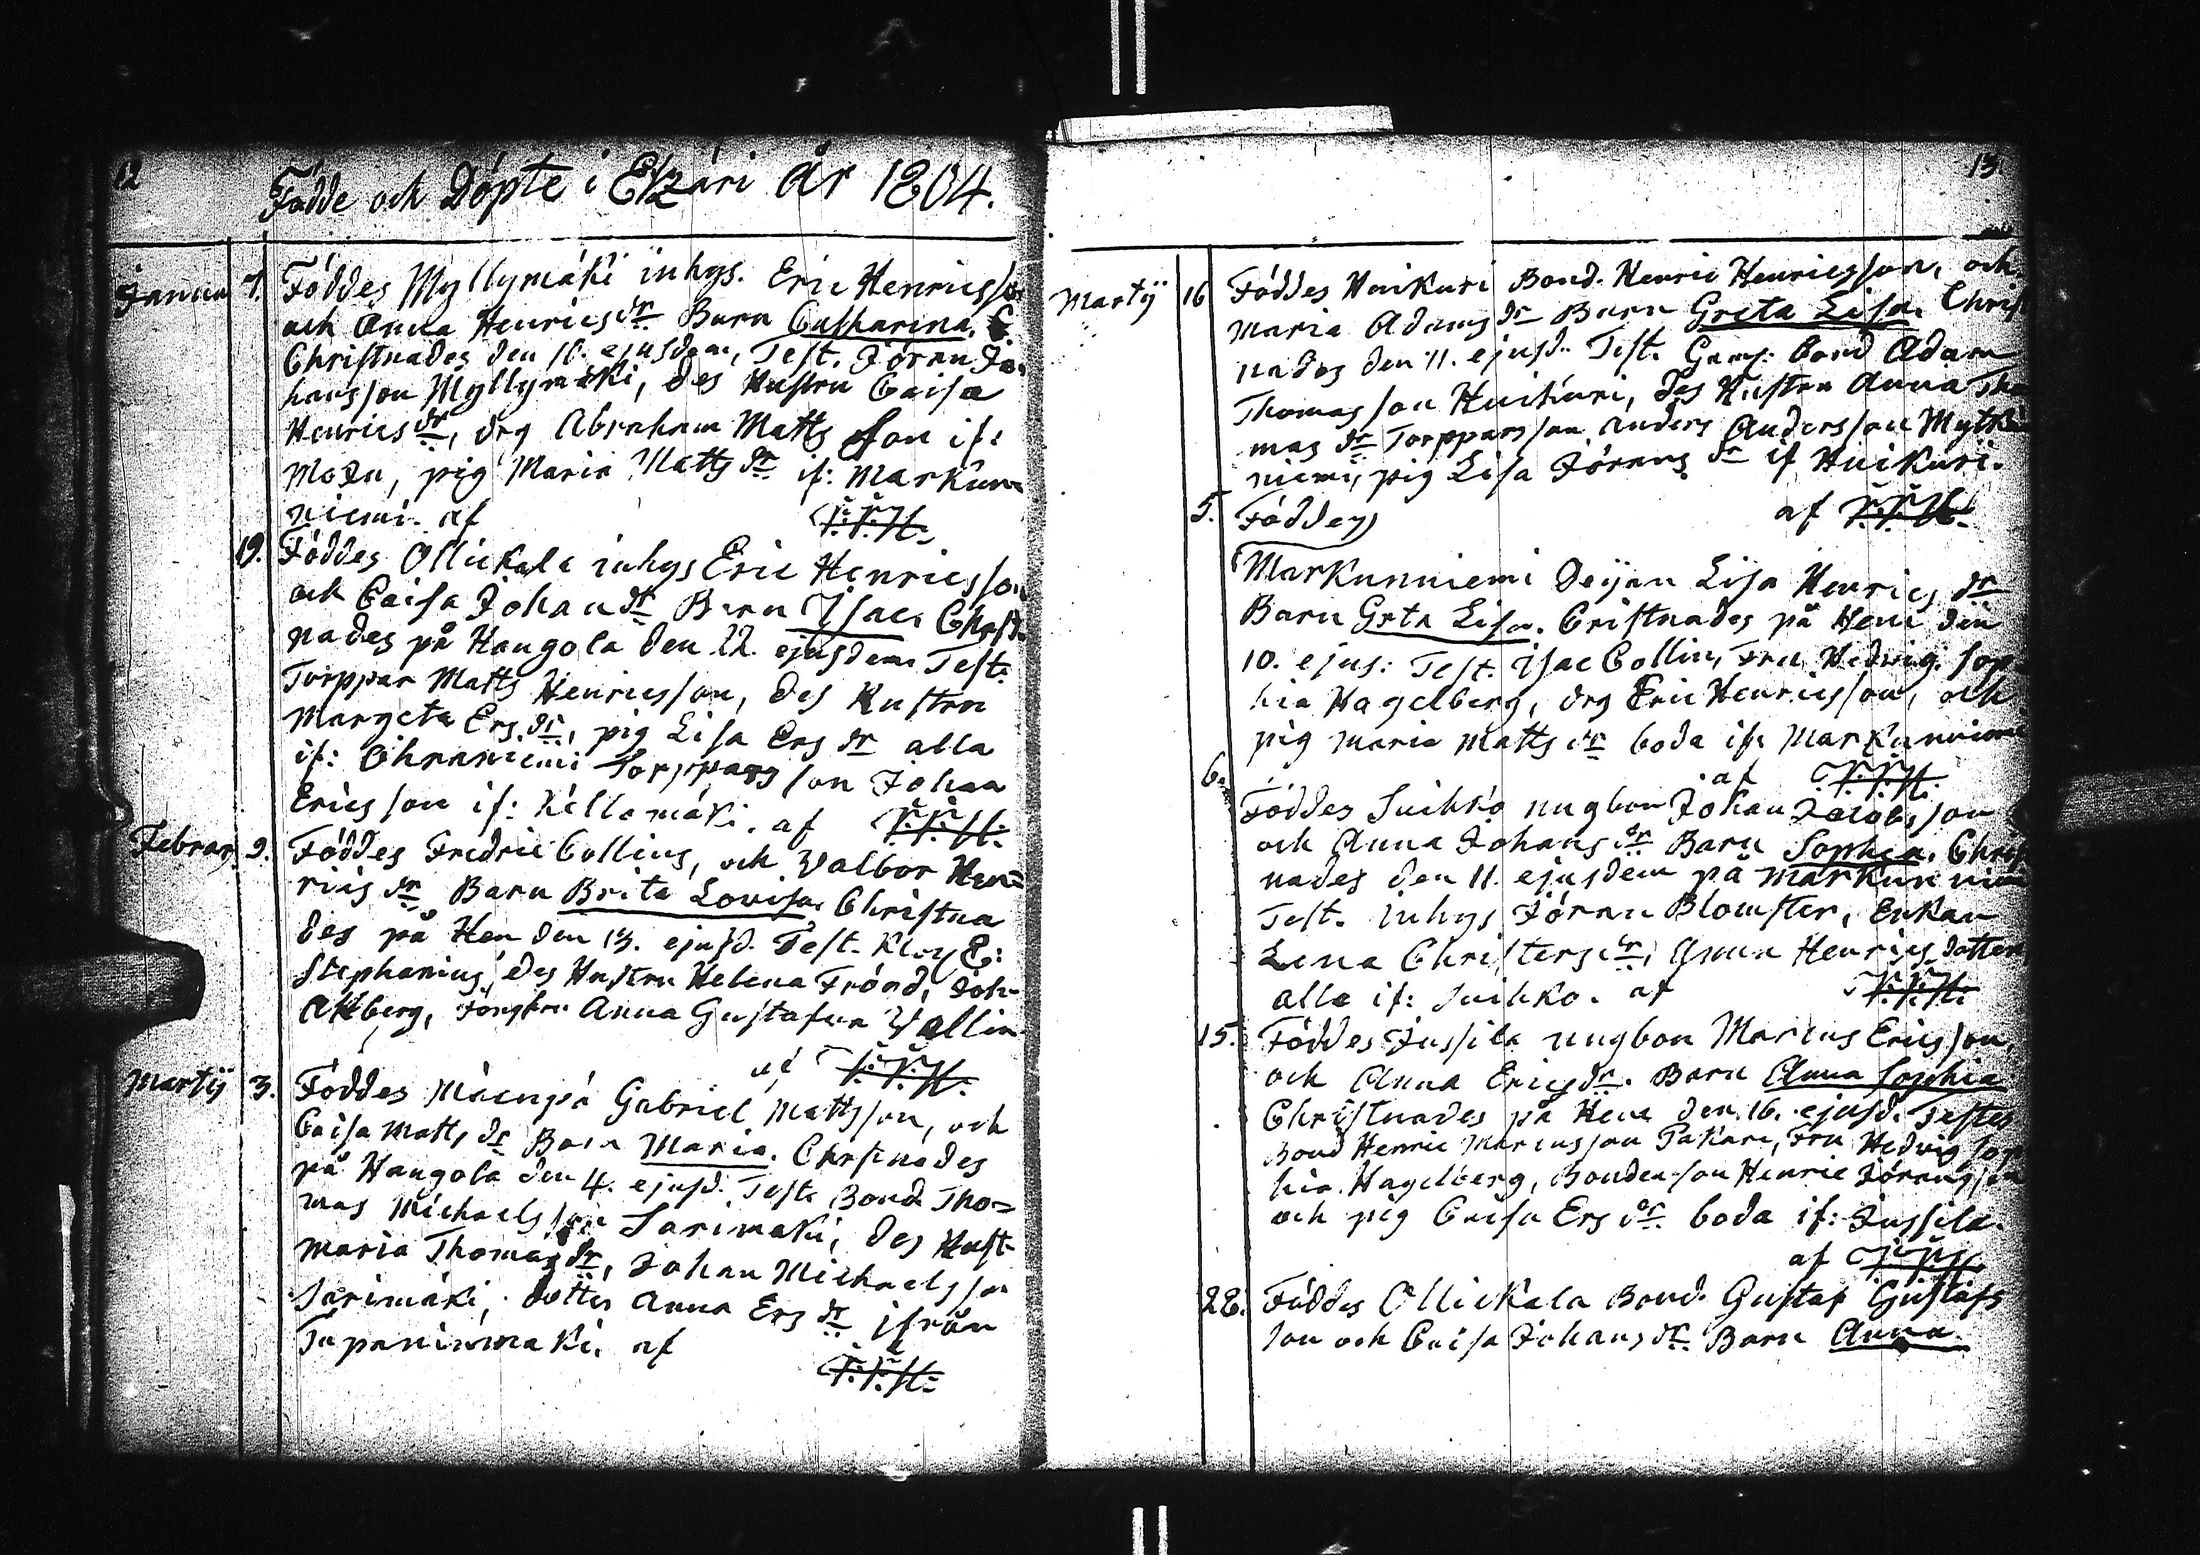 12
Födde och Döpte i Etzäri år 1804.
Janua 7. Föddes Myllymäki inhys. Eric Henricsson
och Anna Henricsdr Barn Catharina. C
Christnades den 10. ejusdem, Test. Jöran Jo-
hansson Myllymäki, des Hustru Caisa
Henricsdr, drg Abraham Matts Son if:
pig Maria Mattsdr if: Markun-
niemi. af V.V.H.
19. Föddes Ollickala inhys Eric Henricsson
och Caisa Johandr Barn Isac. Christ-
nades på Hangola den 22. ejusdem Test:
Torppar Matts Henricsson, des Hustru
Margeta Ersdr, pig Lisa Ersdr alla
if: Torppars son Johan
Ericsson if: Källomäki. af V.V.H.
Februar 9. Föddes Fredric Collins, och Valbor Hen=
rics dr Barn Brita Lovisa. Christna
des på Hen den 13. ejusd. Test. E:
Stephanius, des Hustru Helena Frönd, Joh
Åkberg, Jongfru Anna Gustafva Vallin.
af V.V.H.
Martÿ 3. Föddes Mäenpä Gabriel Mattsson, och
Caisa Matts dr Barn Maria. Chrsinades
på Hangola den 4. ejusd. Test. Bond Tho=
mas Michaelsson Sarimäki, des Hust
Maria Thomasdr, Johan Michaelsson
Särimäki, dotter Anna Ersdr ifrån
Tapaninmäki. af
V.V.H.
13
Martÿ 16 Föddes Huikuri Bond. Henric Henricsson, och
Maria Adams dr Barn Greta Lisa. Christ
nades den 11. ejusd. Test. Gaml. Bond Adam
Thomasson Huikuri, des Hustru Anna Tho
mas dr Torpparsson Anders Andersson Mytkä
niemi, pig Lisa Jörans dr if Huikuri.
af V.V.H.
5. Föddes
Markunniemi Deijan Lisa Henrics dr
Barn Grta Lisa. Cristnades på Hene den
10. ejus: Test. Isac Collin, Fru Hedvig Sop
hia Hagelberg, drg Eric Henricsson, och
pig Maria Matts dr boda if: Markunniem
af V.V.H.
6. Föddes Suihko ungbon Johan Jacobsson
och Anna Johans dr Barn Sophia. Christ
nades den 11. ejusdem på Markunniem
Test. inhys Jöran Blomster, Enkan
Lena Christersdr, Anna Henrics dotter
alla if: Suihko. af V.V.H.
15. Föddes Jussila ungbon Marcus Ericsson,
och Anna Ericsdr. Barn Anna Sophia
Christnades på Hene den 16. ejusd. Testes
Bond Henric Marcusson Pakari, Fru Hedvig Sop
hia Hagelberg, Bondeson Henric Jöransson
och pig Caisa Ers dr. boda if: Jussila.
af V.V.H.
28. Föddes Ollickala Bond. Gustaf Gustafs
son och Caisa Johansdr. Barn Anna